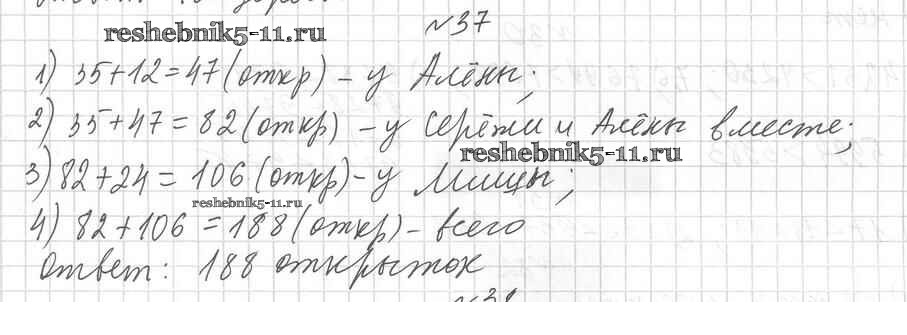 №37
reshebnik5-11.ru
1) 35+12=47(откр) – у Алёны;
2) 35+47=82(откр) – у Серёжи и Алёны вместе;
reshebnik5-11.ru
3) 82+24=106(откр)-у Миши;
reshebnik5-11.ru
4) 82+106=188(откр)-всего
Ответ: 188 открыток
№38